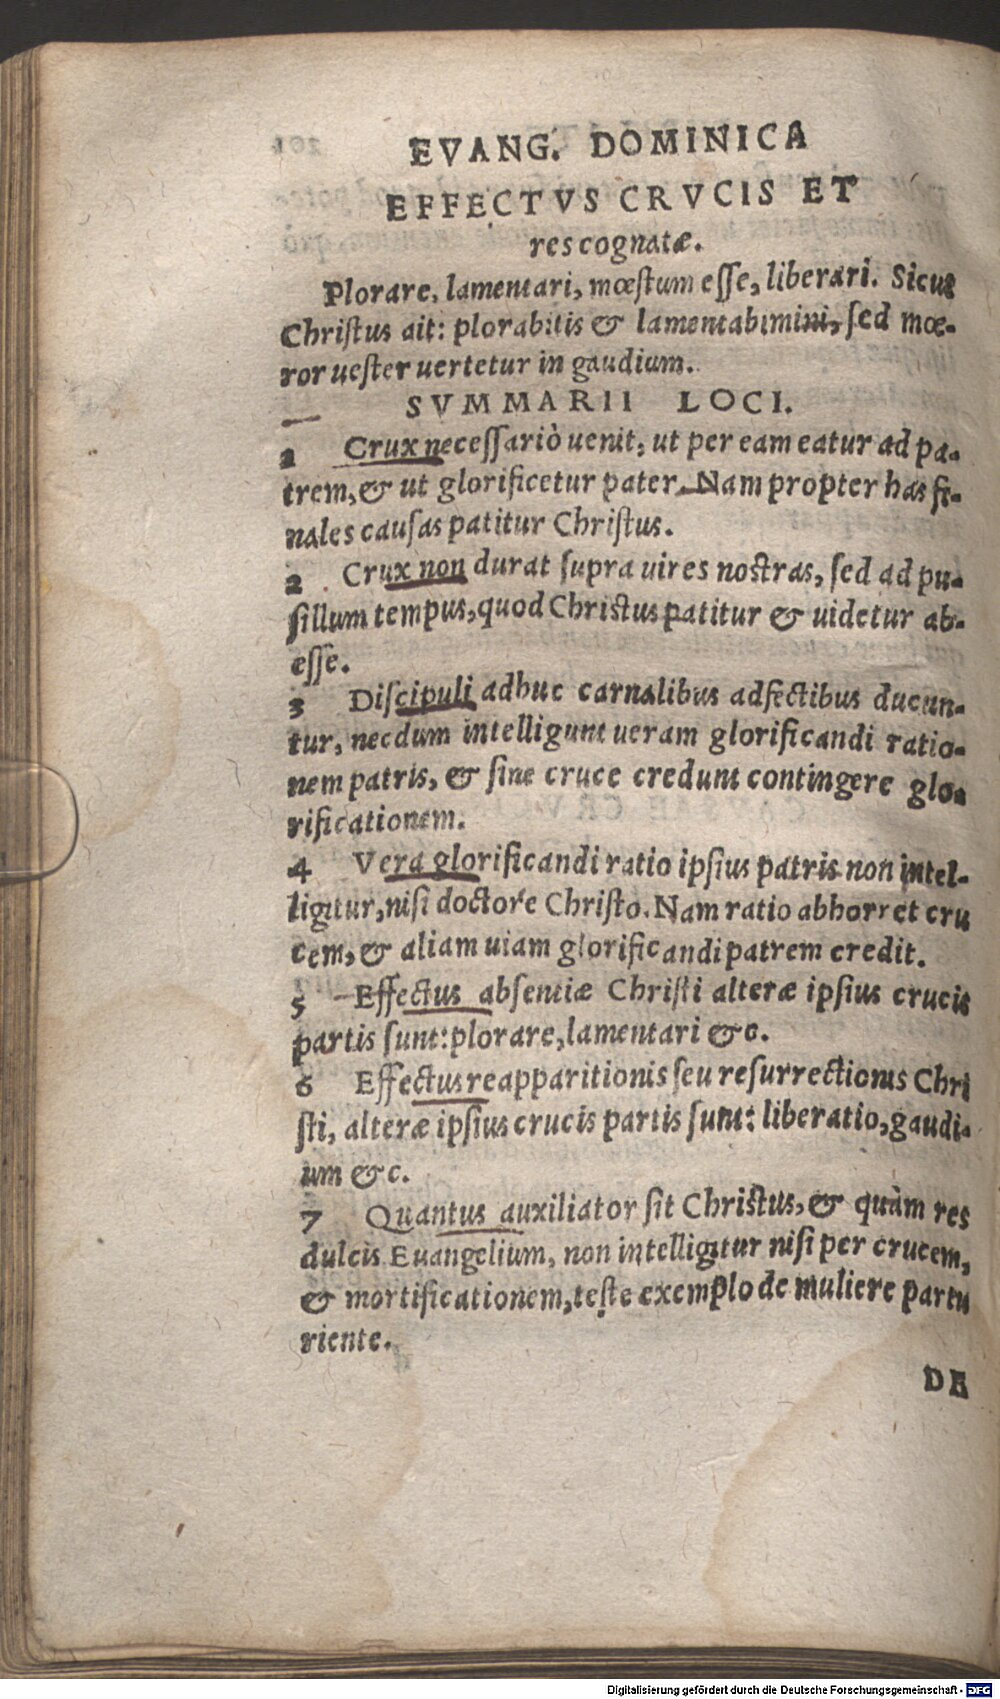 EVANG. DOMINICA
EFFECTVS CRVCIS ET
res cognatæ.
Plorare, lamentari, mœstum esse, liberari. Sicut
Christus ait: plorabitis & lamentabimini, sed mœ-
ror uester uertetur in gaudium.
SVMMARII LOCI.
1 Crux necessariò uenit, ut per eam eatur ad pa-
trem, & ut glorificetur pater. Nam propter has fi-
nales causas patitur Christus.
2 Crux non durat supra uires nostras, sed ad pu-
sillum tempus, quod Christus patitur & uidetur ab-
esse.
3 Discipuli adhuc carnalibus adfectibus ducun-
tur, necdum intelligunt ueram glorificandi ratio-
nem patris, & sine cruce credunt contingere glo-
rificationem.
4 Vera glorificandi ratio ipsius patris non intel-
ligitur, nisi doctore Christo. Nam ratio abhorret cru
cem, & aliam uiam glorificandi patrem credit.
5 Effectus absentiæ Christi alteræ ipsius crucis
partis sunt: plorare, lamentari &c.
6 Effectus reapparitionis seu resurrectionis Chri
sti, alteræ ipsius crucis partis sunt: liberatio, gaudi-
um &c.
7 Quantus auxiliator sit Christus, & quàm res
dulcis Euangelium, non intelligitur nisi per crucem,
& mortificationem, teste exemplo de muliere partu
riente.
DE
Digitalisierung gefördert durch die Deutsche Forschungsgemeinschaft - DFG